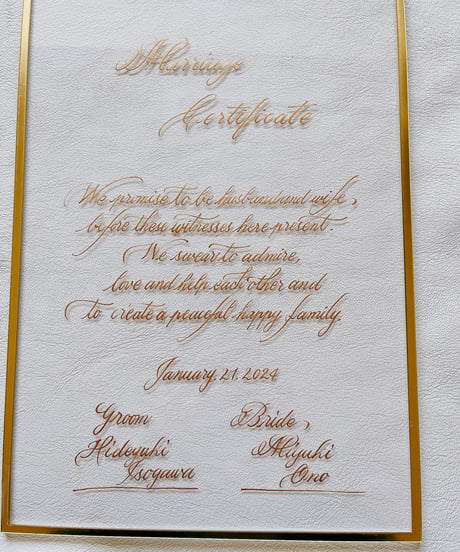 Marriage
Certificate
We promise to be husband and wife,
before these witnesses here present.
We swear to admire,
love and help each other and
to create a peaceful happy family.
January. 21. 2024
Groom
Bride,
Hideyuki
Isogawa
Miyuki
Ono